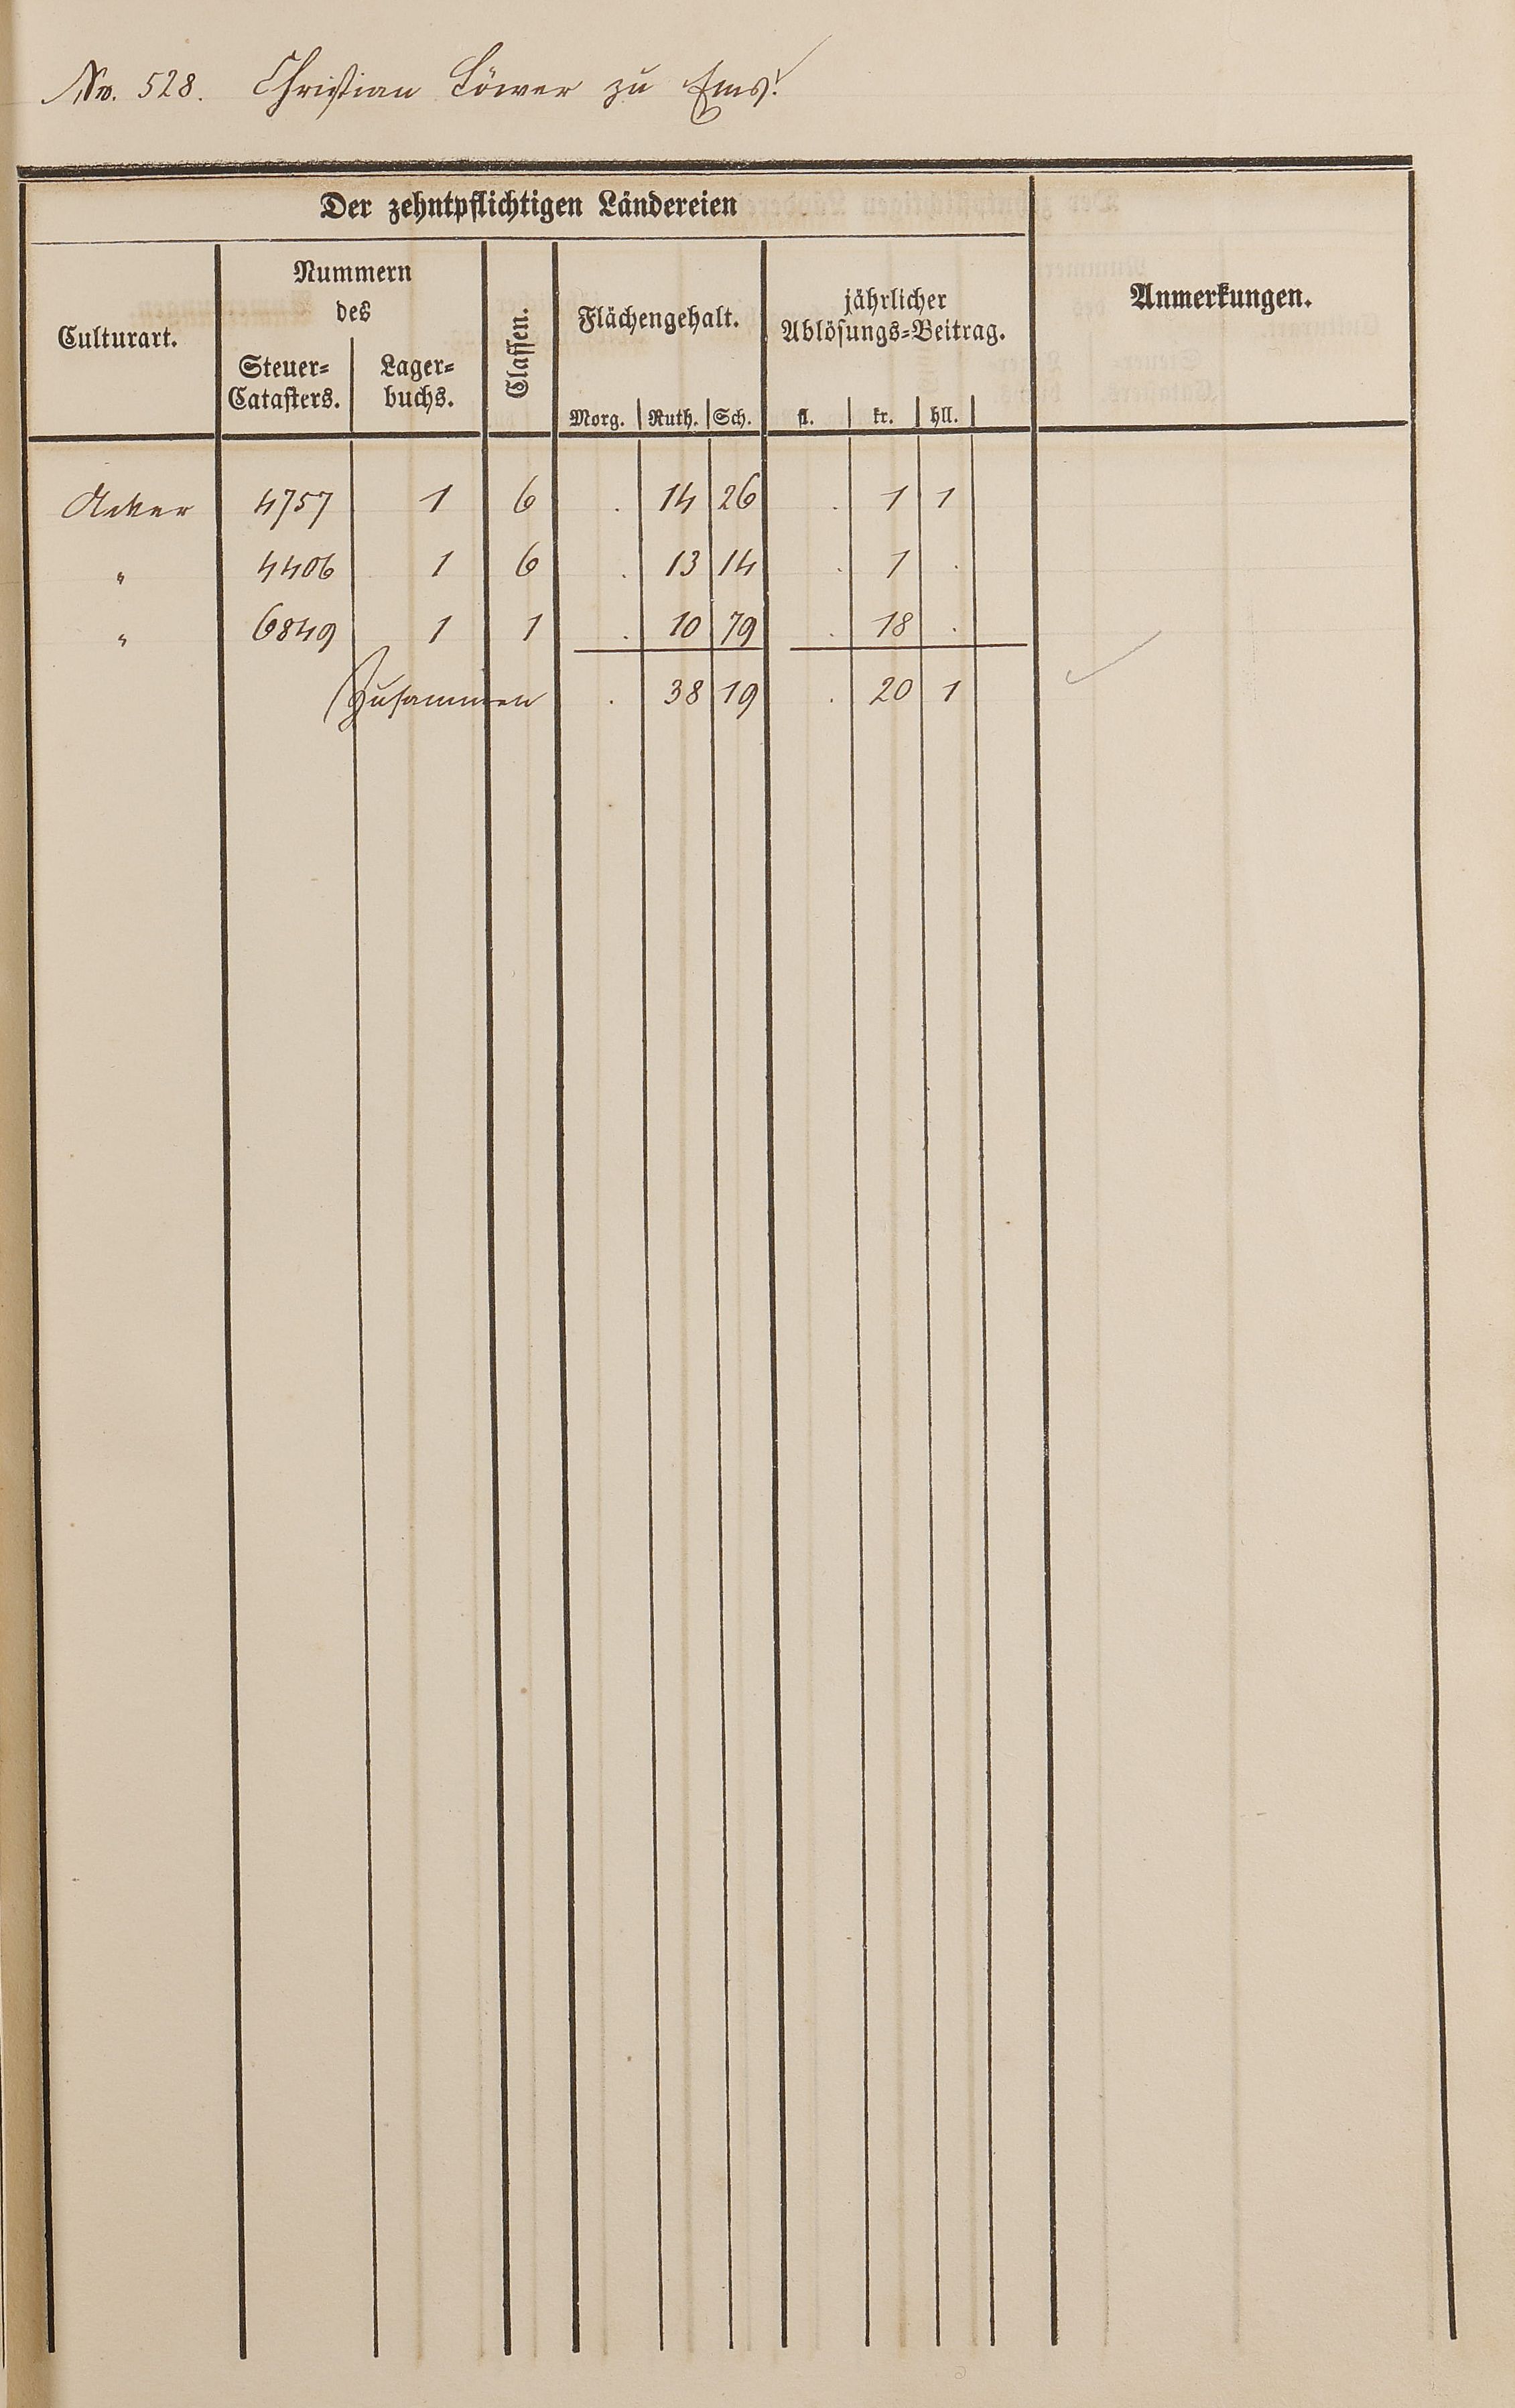 No. 528. Christian Löwer zu Ems.
Der zehntpflichtigen Ländereien
Culturart.
Nummern
des
Steuer-
Catasters.
Lager-
buchs.
Classen.
Flächengehalt.
Morg. Ruth. Sch.
jährlicher
Ablösungs-Beitrag.
fl. kr. hll.
Anmerkungen.
Acker 4757 1 6 . 14 26 . 1 1
" 4406 1 6 . 13 14 . 1 .
" 6849 1 1 . 10 79 . 18 .
Zusammen . 38 19 . 20 1